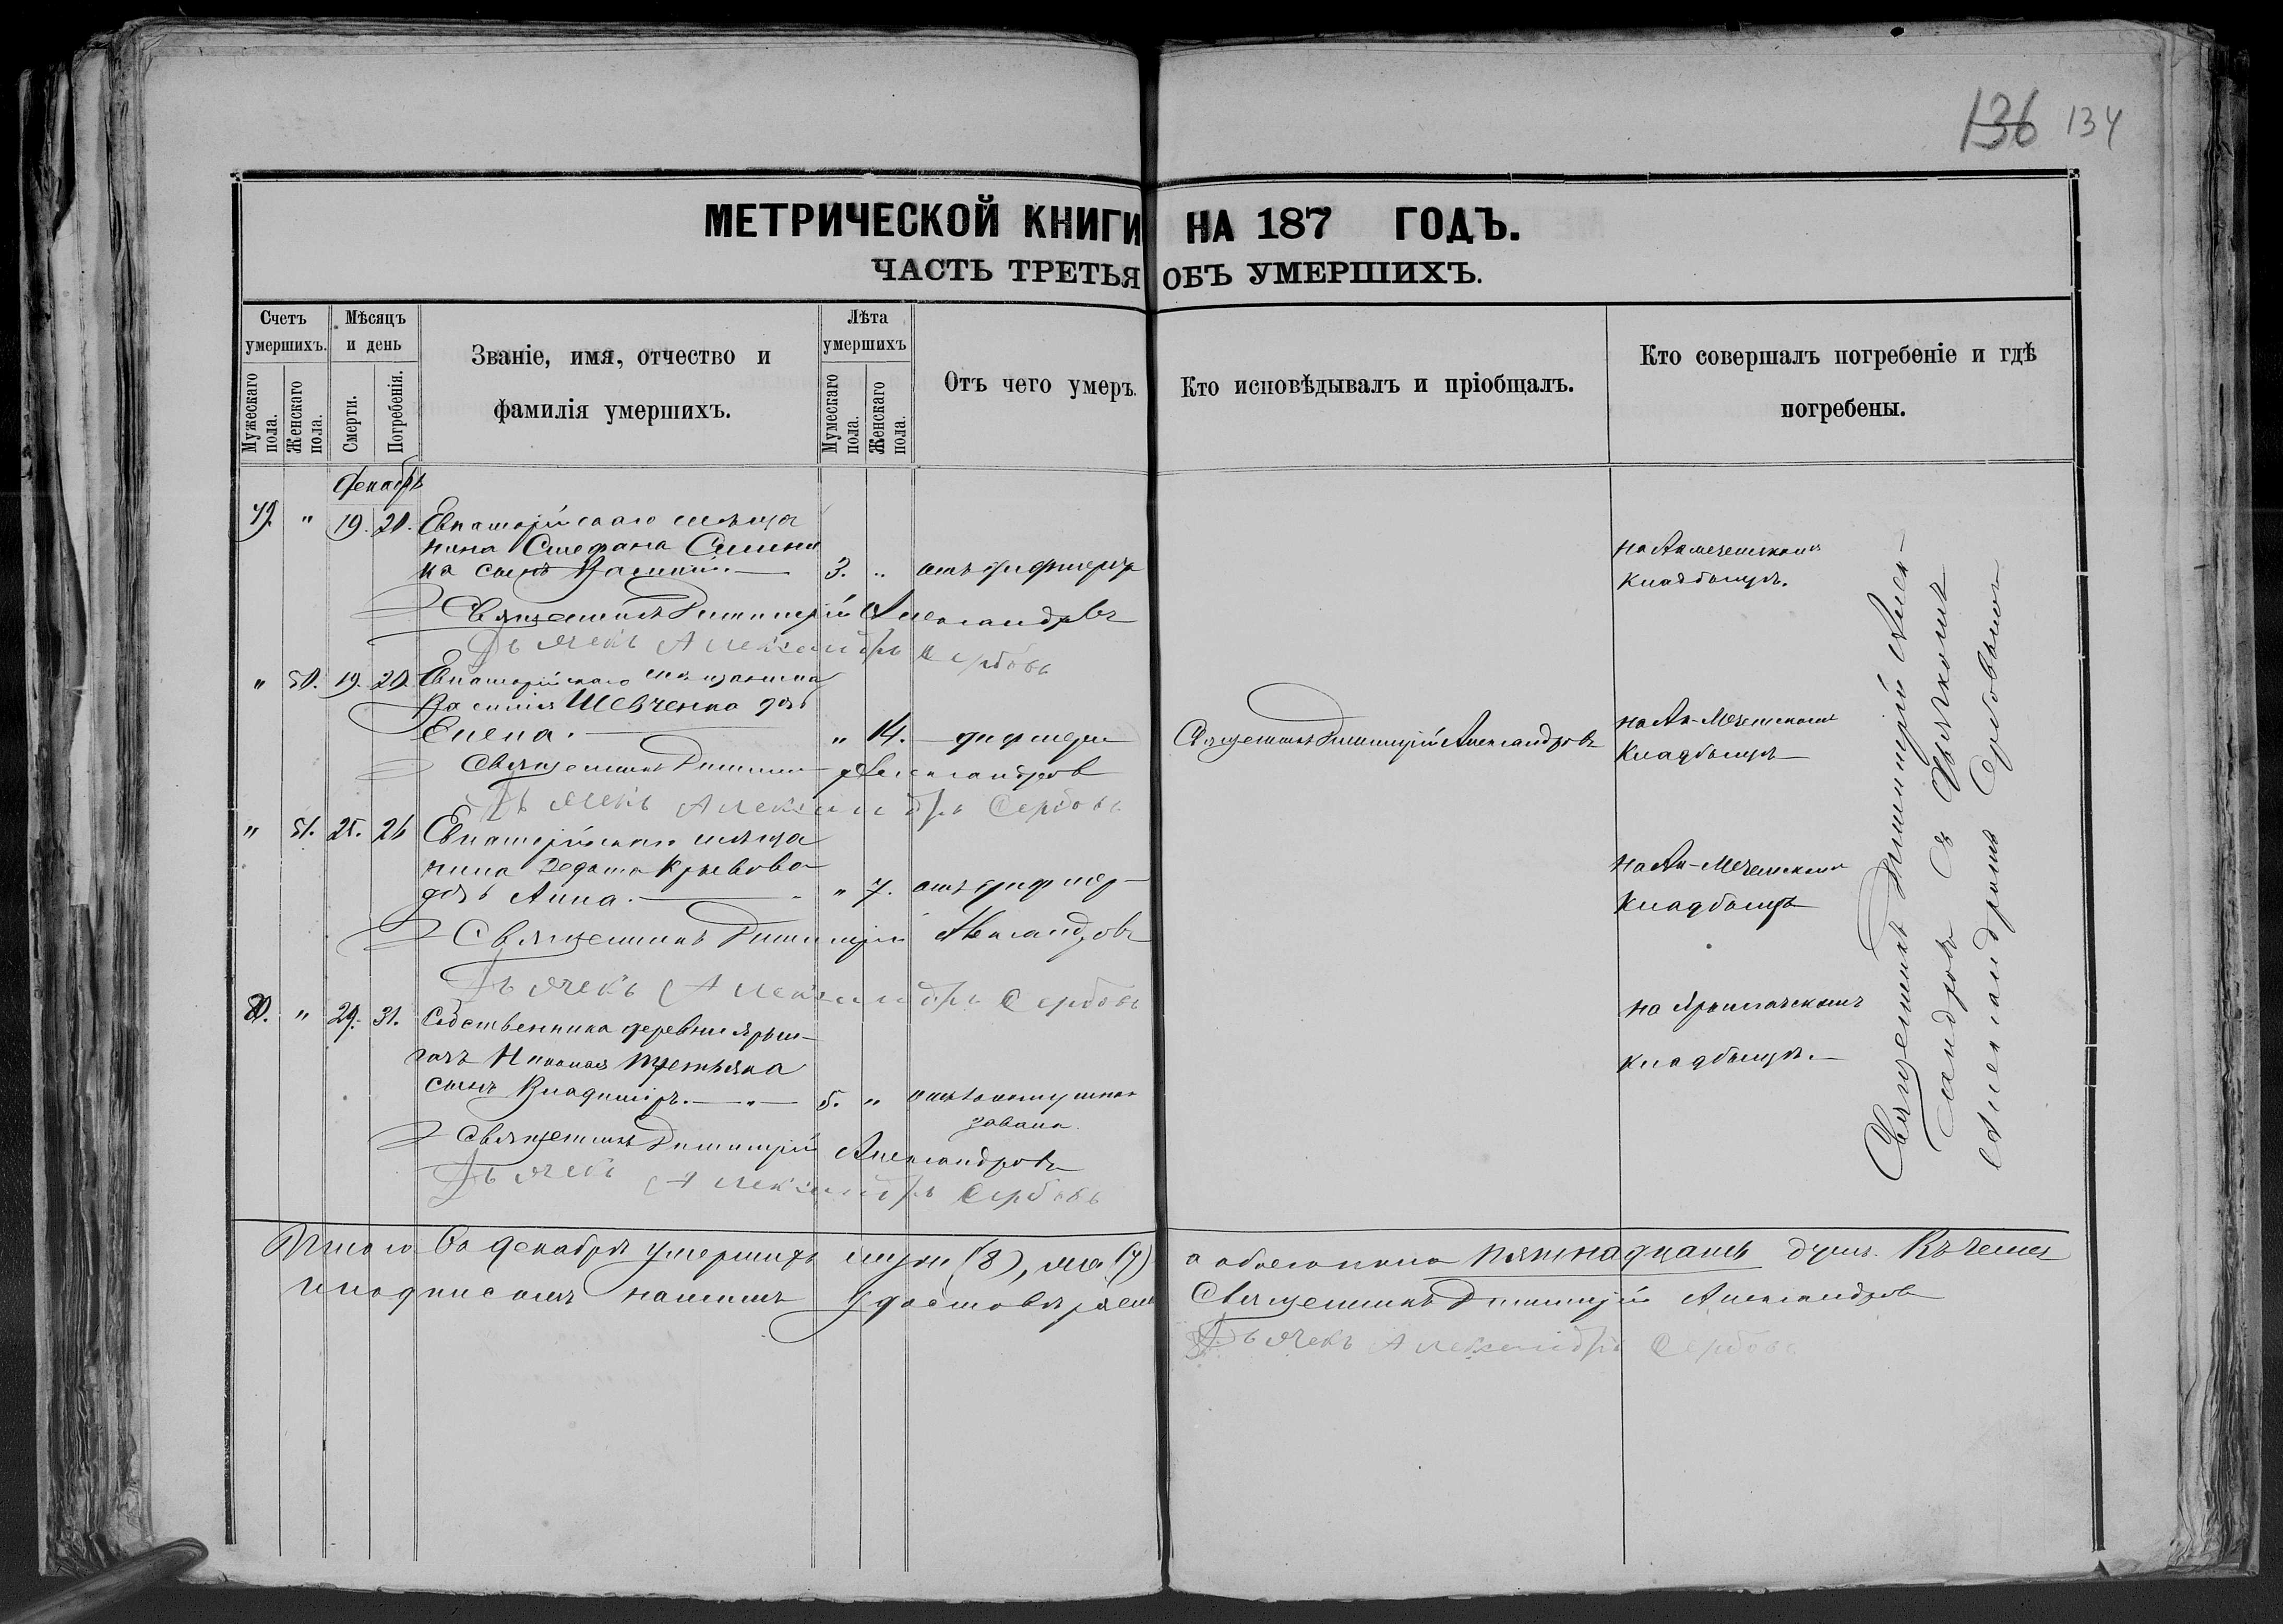 136 134
МЕТРИЧЕСКОЙ КНИГИ НА 187 ГОДЪ.
ЧАСТЬ ТРЕТЬЯ ОБЪ УМЕРШИХЪ.
Счетъ умершихъ.
Мужескаго пола.
Женскаго пола.
Мѣсяцъ и день
Смерти.
Погребенія.
Званіе, имя, отчество и
фамилія умершихъ.
Лѣта умершихъ
Мужескаго пола.
Женскаго пола.
Отъ чего умеръ.
Кто исповѣдывалъ и пріобщалъ.
Кто совершалъ погребеніе и гдѣ
погребены.
Декабрь
" 19. 20. Евпаторійскаго мѣща
нина Стефана
ка сынъ Василій. 3. " отъ дифтери
на Акмечетскомъ
кладбищѣ.
Священникъ Димитрій Александровъ
Дьячекъ Александръ Сербовъ
" 50. 19. 20. Евпаторійскаго мѣщанина
Василія Шевченка дочь
Елена. " 14. дифтери
Священникъ Димитрій Александровъ
на Ак-Мечетскомъ
кладбищѣ
Священникъ Димитрій Александров
Дьячекъ Александръ Сербовъ
" 51. 25. 26 Евпаторійскаго мѣща
нина Федота Кривова
дочь Анна. " 7. отъ дифтер
на Ак-Мечетскомъ
кладбищѣ
Священникъ Димитрій Александровъ
Дьячекъ Александръ Сербовъ
" 29. 31. Собственника деревни Ярыл
гачъ Николая Третьяка
сынъ Владиміръ. 5. "
на Ярылгачскомъ
кладбищѣ.
Священникъ Димитрій Александровъ
Дьячекъ Александръ Сербовъ
Священникъ Димитрій Алек-
сандровъ съ дьячкомъ
Александромъ Сербовымъ
Итого Въ декабрѣ умершихъ муж (8), же (7) а обоего пола пятнадцать душъ. Къ чему
и подписомъ нашимъ удостовѣряем Священникъ Димитрій Александров
Дьячекъ Александръ Сербовъ